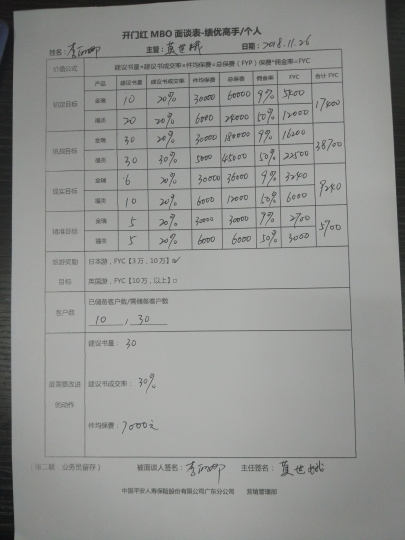 开门红 MBO 面谈表-绩优高手/个人
姓名： 主管： 日期：2018.11.26
价值公式 建议书量*建议书成交率*件均保费=总保费（FYP）保费*佣金率=FYC
产品 建议书量 建议书成交率 件均保费 总保费 佣金率 FYC 合计 FYC
初定目标 金瑞 10 20% 30000 60000 9% 5400 17400
福类 20 20% 6000 24000 50% 12000
挑战目标 金瑞 30 20% 30000 180000 9% 16200 38700
福类 30 30% 5000 45000 50% 22500
现实目标 金瑞 6 20% 30000 36000 9% 3240 9240
福类 10 20% 6000 12000 50% 6000
精准目标 金瑞 5 20% 30000 30000 9% 2700 5700
福类 5 20% 6000 6000 50% 3000
旅游奖励 日本游，FYC【3万，10万】☑
目标 英国游，FYC【10万，以上】□
客户数 已储备客户数/需储备客户数
10 , 30
建议书量：30
最需要改进 建议书成交率：30%
的动作
件均保费：7000元
（第二联 业务员留存） 被面谈人签名： 主任签名：
中国平安人寿保险股份有限公司广东分公司 营销管理部